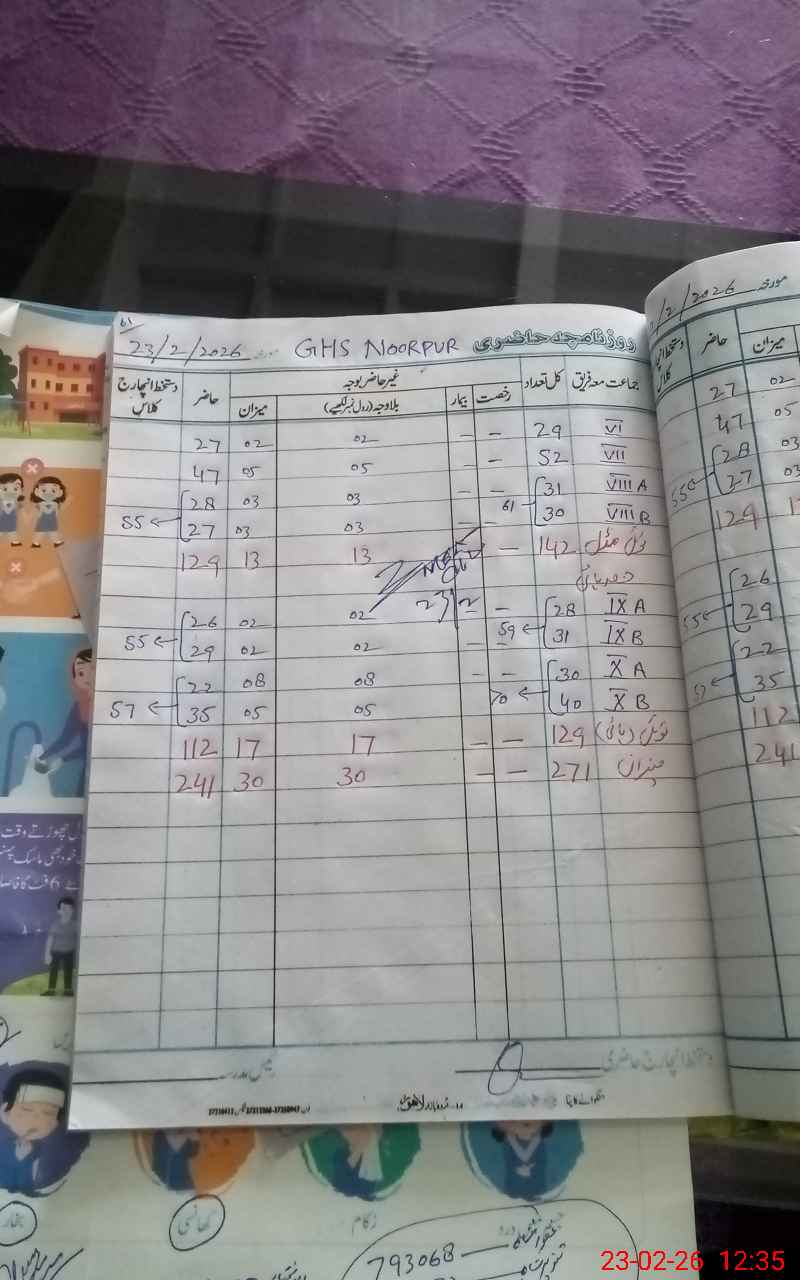 61
روزنامچہ حاضری GHS NOORPUR مورخہ 23/2/2026
جماعت معہ فریق کل تعداد رخصت بیمار غیر حاضر بوجہ حاضر دستخط انچارج کلاس
بلاوجہ (رول نمبر لکھیے) میزان
VI 29 – – 02 02 27
VII 52 – – 05 05 47
VIII A 31 – – 03 03 28
VIII B 30 61 – – 03 03 27 55
ٹوٹل مڈل 142 – 13 13 129
حصہ ہائی
23/2
IX A 28 – 02 02 26
IX B 31 59 – – 02 02 29 55
X A 30 – – 08 08 22
X B 40 70 05 05 35 57
ٹوٹل (ہائی) 129 – – 17 17 112
میزان 271 – – 30 30 241
دستخط انچارج حاضری
رئیس مدرسہ
مورخہ 2/2/2026
میزان حاضر دستخط انچارج کلاس
02 27
05 47
03 28
03 27 55
129
26
29 55
22
35 57
112
241
کھانسی
زکام
بخار
793068
23-02-26 12:35